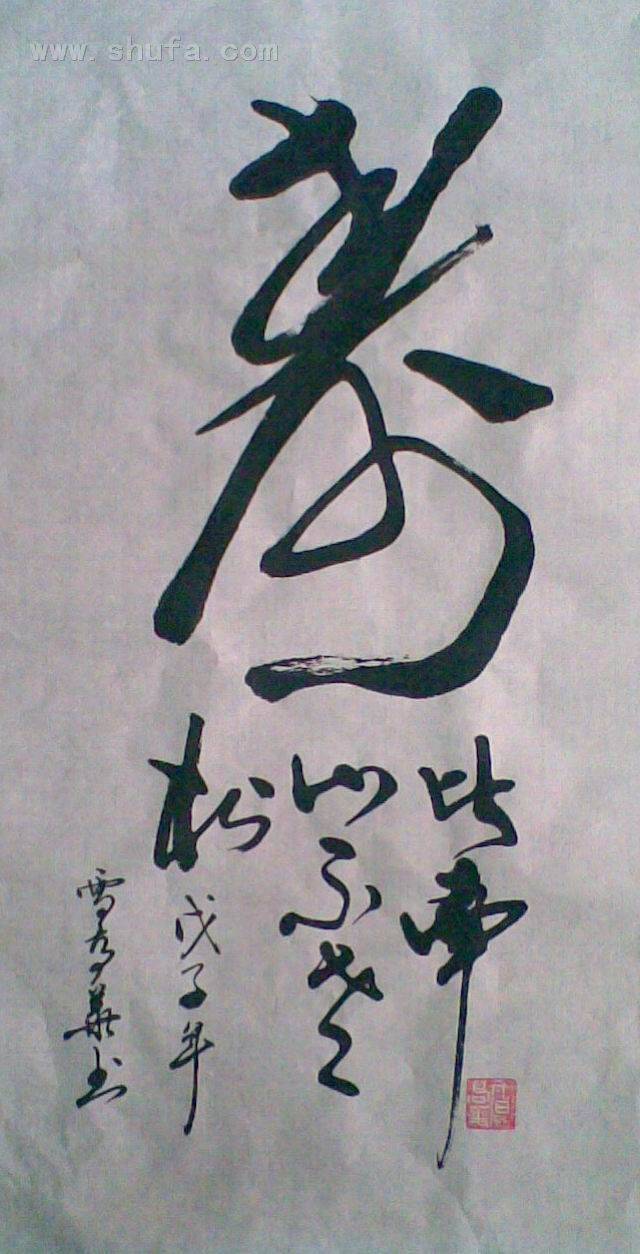 www.shufa.com
寿
比南
山不老
松
戊子年
雪春華书